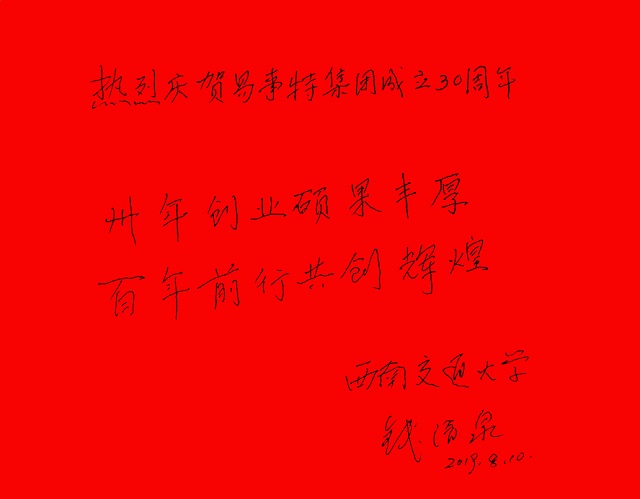 热烈庆贺易事特集团成立30周年
卅年创业硕果丰厚
百年前行共创辉煌
西南交通大学
钱清泉
2019.8.10.